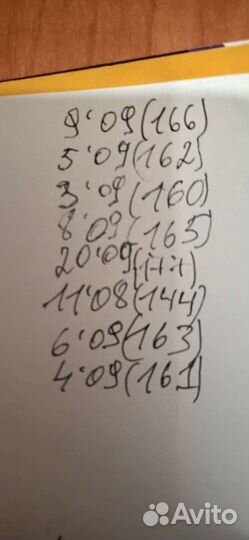 9'09(166)
5'09(162)
3'09(160)
8'09(165)
20'09(177)
11'08(144)
6'09(163)
4'09(161)
Avito